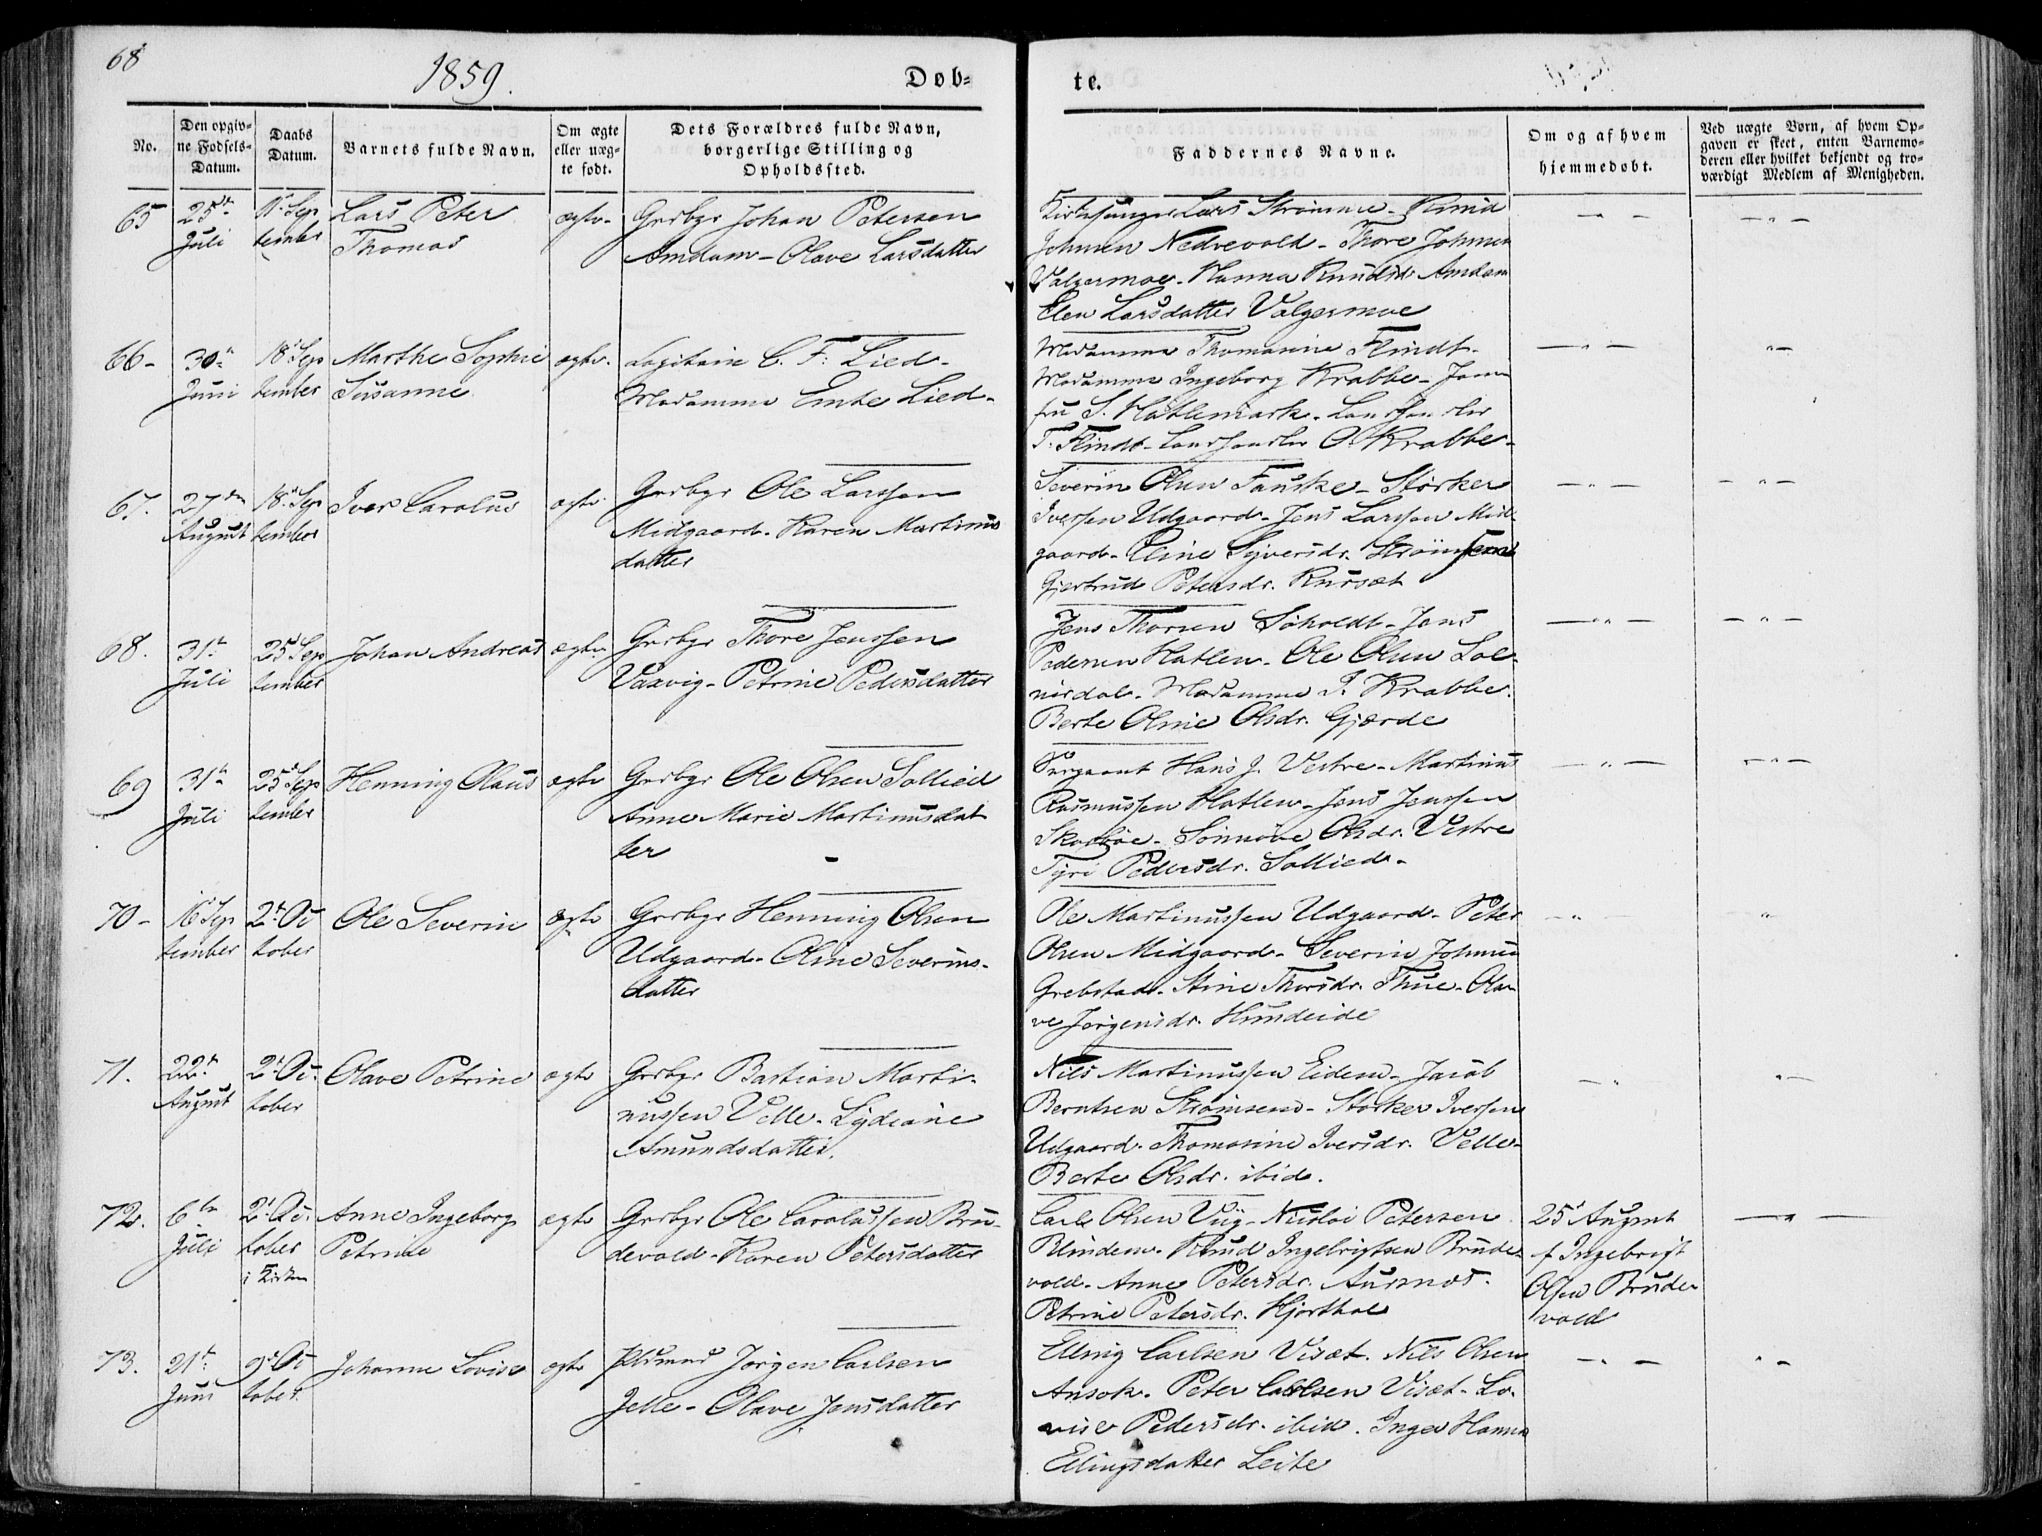 68
1859.
Døb-
te.
No.
Den opgiv-
ne Fødsels-
Datum.
Daabs
Datum.
Barnets fulde Navn.
Om ægte
eller uæg-
te født.
Dets Forældres fulde Navn,
borgerlige Stilling og
Opholdssted.
Faddernes Navne.
Om og af hvem
hjemmedøbt.
Ved uægte Børn, af hvem Op-
gaven er skeet, enten Barnemo-
deren eller hvilket bekjendt og tro-
værdigt Medlem af Menigheden.
65
25de
Juli
11te Sep
tember
Lars Peter
Thomas
ægte
Grdbgr Johan Petersen
Amdam - Olave Larsdatter
Kirkesanger Lars Strømme - Knud
Johnsen Nedrevold - Thore Johnsen
Valgermoe - Hanna Knudsd. Amdam
Elen Larsdatter Valgermoe
66-
30te
Juni
18de Sep
tember
Marthe Sophie
Susanne
ægte
Capitain C. F. Lied -
Madamme Emte Lied -
Madamme Thomasine Flindt -
Madamme Ingeborg Krabbe - Jom
fru S. Hatlemark - Landhandler
T. Flindt - Landhandler O. Krabbe -
67.
27de
August
18de Sep
tember
Iver Carolus
ægte
Grdbgr Ole Larssen
Midgaard - Karen Martinus
datter
Severin Olsen Fauske - Størker
Iversen Udgaard - Jens Larssen Mid-
gaard - Eline Syversdr. Strømsem
Gjertrud Petersdr. Kursæt
68.
31te
Juli
25de Sep
tember
Johan Andreas
ægte
Grdbgr Thore Jenssen
Vaxvig - Petrine Pedersdatter
Jens Thorsen Søholdt - Jens
Pedersen Hatlen - Ole Olsen Sol-
nørdal - Madamme I. Krabbe.
Berte Oline Olsdr. Gjærde
69
31te
Juli
25de Sep
tember
Henning Olaus
ægte
Grdbgr Ole Olsen Sollied
Anne Marie Martinusdat
ter
Sergeant Hans J. Vestre - Martinus
Rasmussen Hatlen - Jens Jenssen
Skorbøe - Sønnøve Olsdr. Vestre
Tyri Pedersdr. Sollied -
70-
16de Sep
tember
2den Oc
tober
Ole Severin
ægte
Grdbgr Henning Olsen
Udgaard - Oline Severins-
datter
Ole Martinussen Udgaard - Peter
Olsen Midgaard - Severin Johnsen
Grebstad - Stine Thorsdr. Thue - Ola
ve Jørgensdr. Hundeide
71.
22de
August
2den Oc-
tober
Olave Petrine
ægte
Grdbgr Bastian Marti-
nussen Velle - Lydiane
Amundsdatter.
Nils Martinussen Eidem - Jacob
Berntsen Strømsem - Størker Iversen
Udgaard - Thomasine Iversdr. Velle -
Berte Olsdr. ibid.
72.
6te
Juli
2den Oc-
tober
i Kirken
Anne Ingeborg
Petrine
ægte
Grdbgr Ole Carolussen Bru-
devold - Karen Petersdatter
Carl Olsen Viig - Nicolai Petersen
Blindem - Knud Ingebrigtsen Brude-
vold - Anne Petersdr. Aursnes.
Petrine Petersdr. Hjorthol
25de August
f Ingebrigt
Olsen Brude
vold
73.
21te
Juni
9de Oc
tober
Johanne Lovise
ægte
Pldsmd Jørgen Carlsen
Jelle - Olave Jensdatter
Elling Carlsen Visæt. Nils Olsen
Ansok - Peter Carlsen Visæt - Lo-
vise Pedersdr. ibid. Inger Hanna
Ellingsdatter Leite